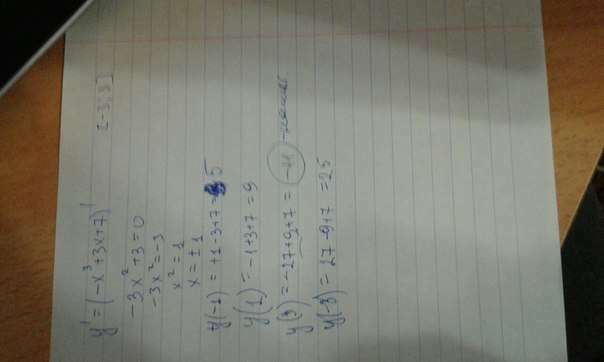 y' = (-x³+3x+7)' [-3; 3]
-3x²+3=0
-3x²=-3
x²=1
x=±1
y(-1) = +1-3+7=5
y(1) = -1+3+7=9
y(3) = -27+9+7 = -11
y(-3) = 27-9+7 =25